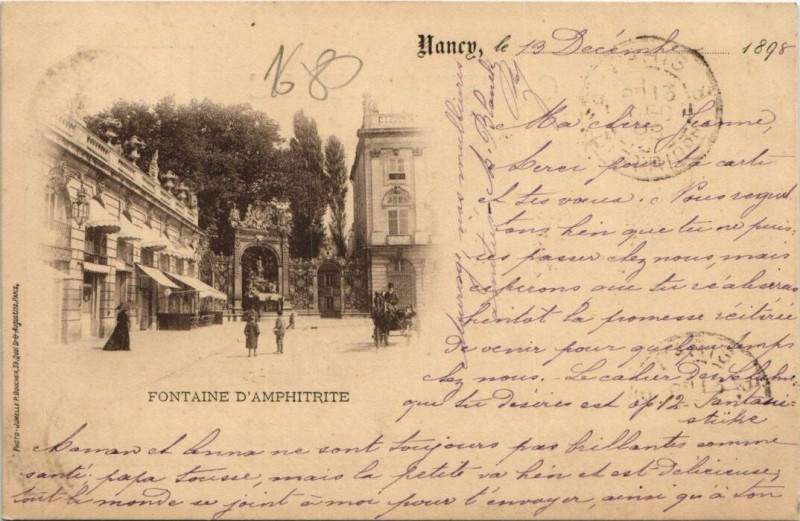 Nancy, le 13 Décembre 1898
1680
Ma chère Jeanne,
Merci pour ta carte
et tes vœux. Nous regret
tons bien que tu ne puis-
ses passer chez nous, mais
espérons que tu réaliseras
bientôt la promesse réitérée
de venir pour quelque temps
chez nous. Le cahier de
que tu désires est op 12. Fantasie-
stücke
Maman et Anna ne sont toujours pas brillantes comme
santé, papa tousse, mais la petite va bien et est délicieuse;
tout le monde se joint à moi pour t'envoyer, ainsi qu'à ton
entourage, nos meilleures
amitiés
FONTAINE D'AMPHITRITE
PHOTO-JUMELLE P. BOUCHER, 39, Quai Gds Augustins, PARIS.
PARIS
13